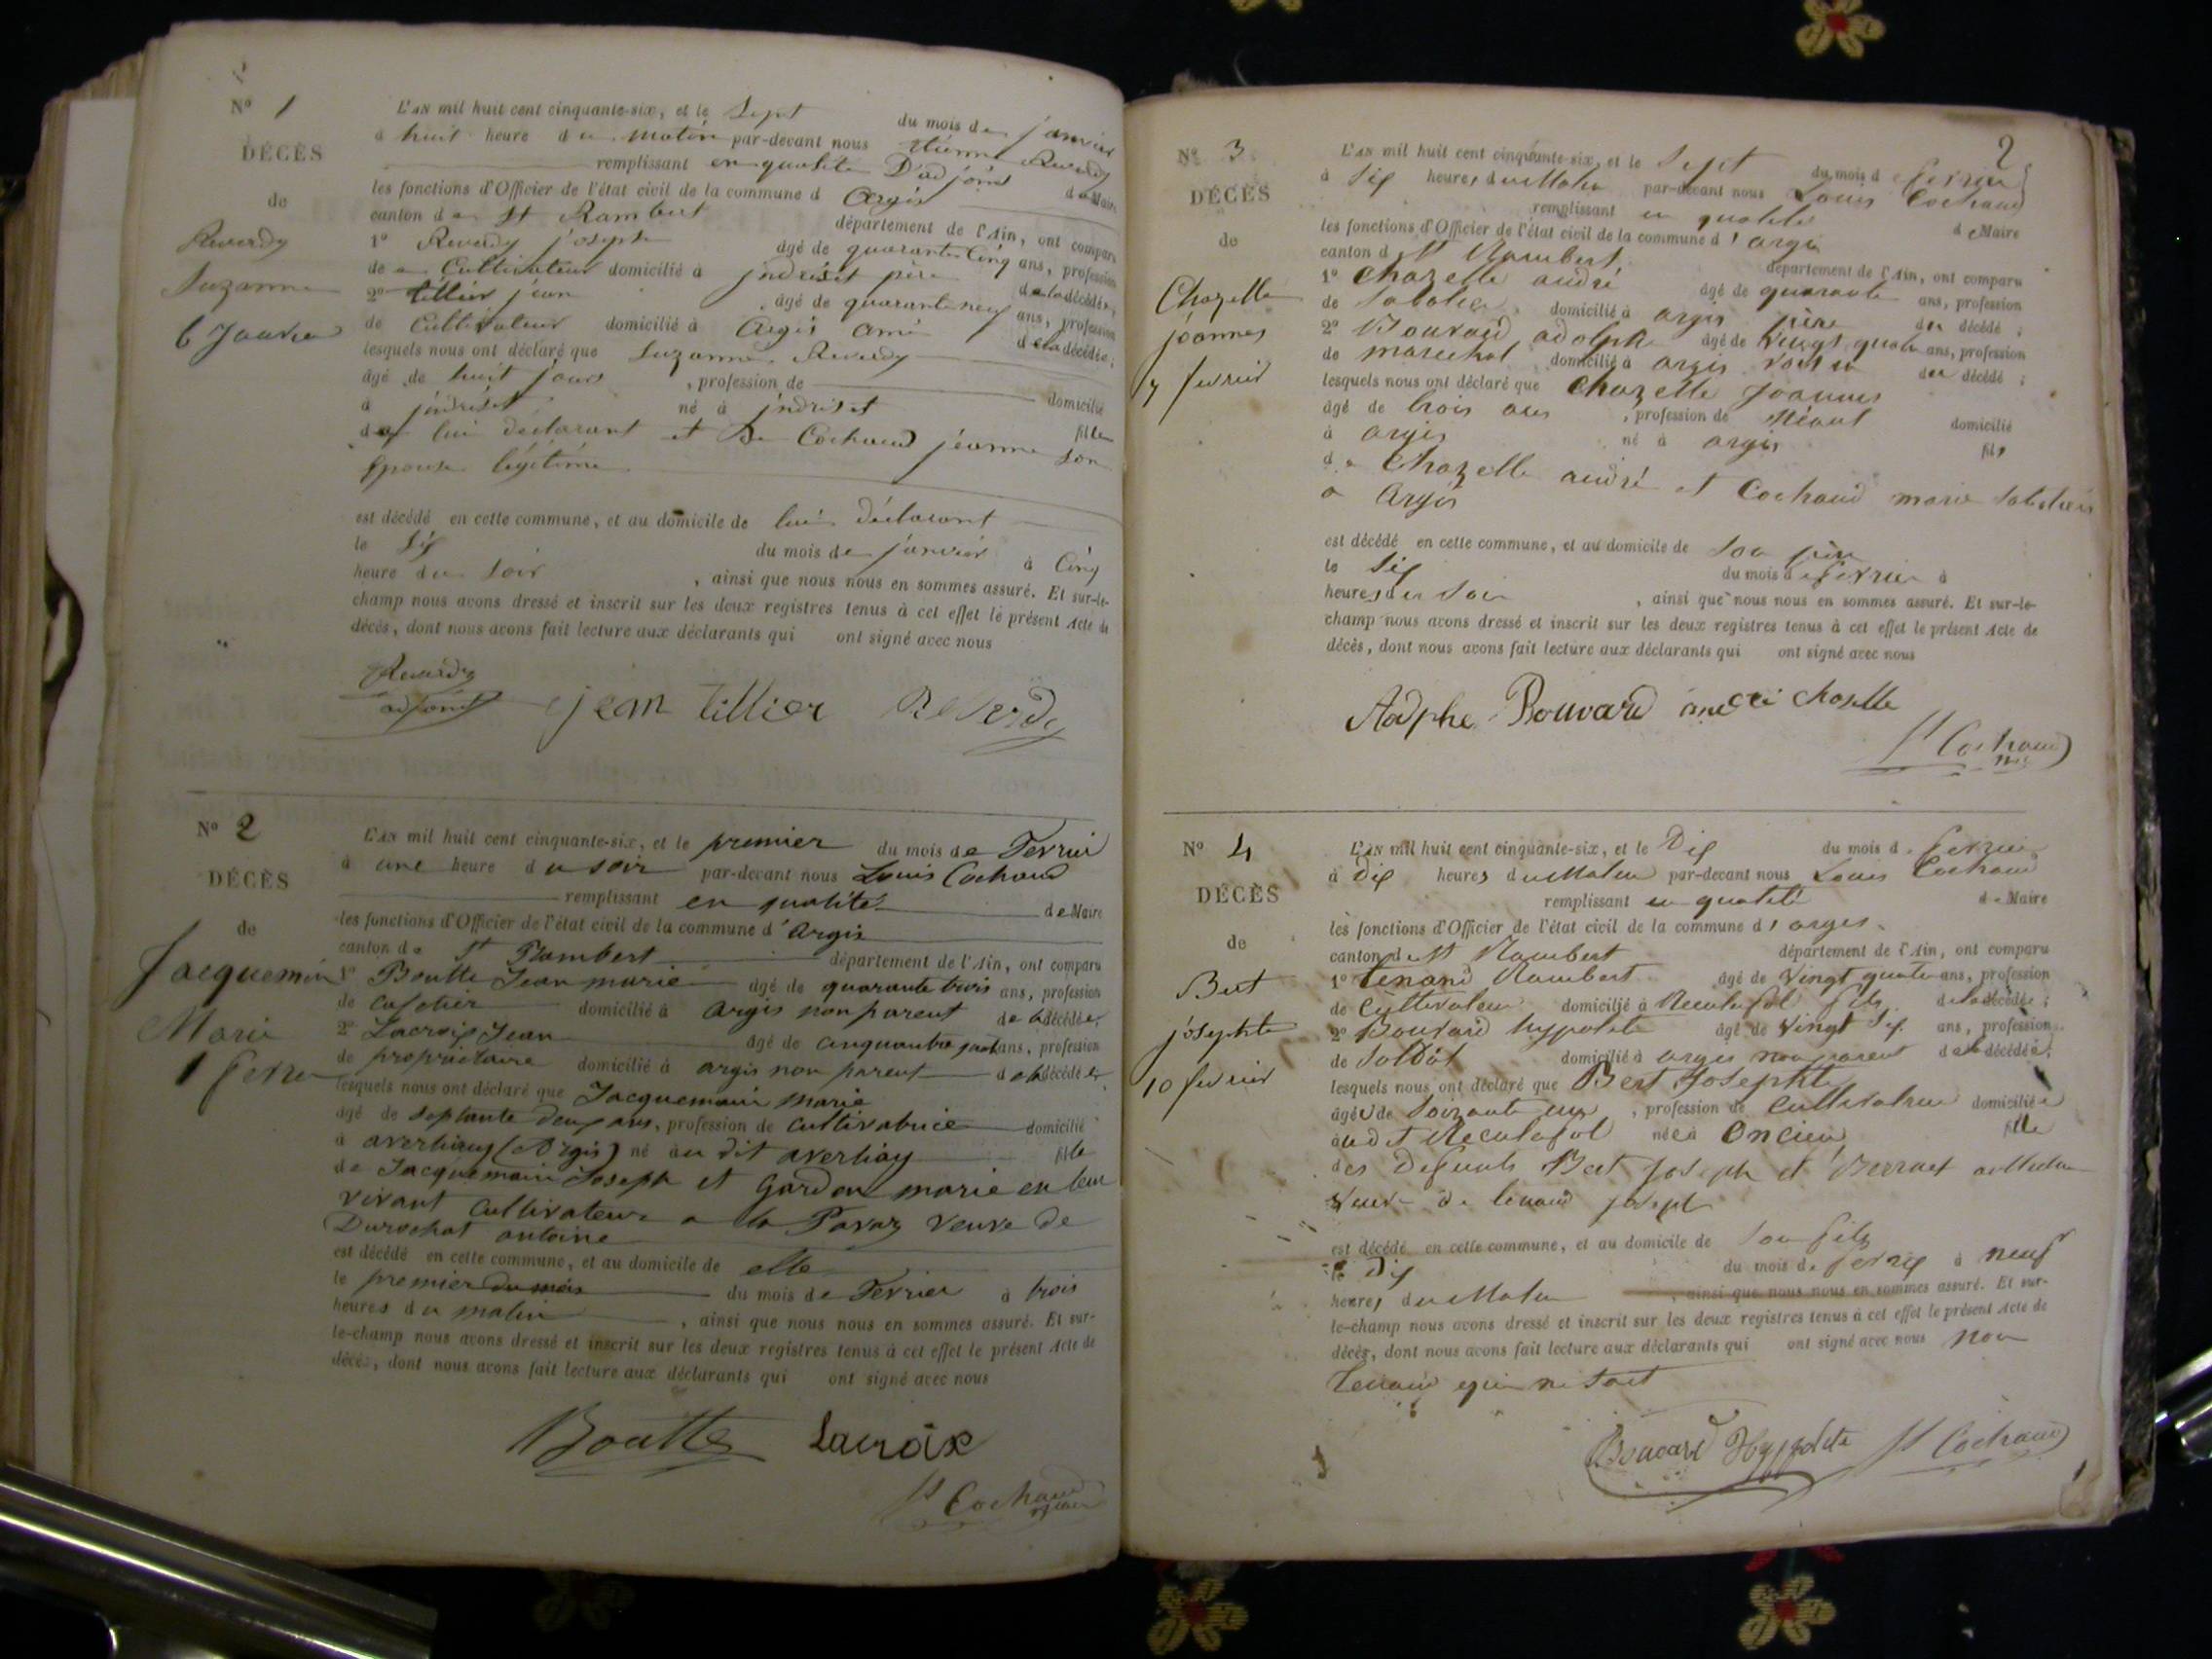 2
N° 1
DÉCÈS
de
Reverdy
Suzanne
6 Janvier
L'AN mil huit cent cinquante-six, et le Sept du mois de janvier
à huit heure du matin par-devant nous étienne Reverdy
remplissant en qualité D'adjoint de Maire
les fonctions d'Officier de l'état civil de la commune d Argis
canton de St Rambert département de l'Ain, ont comparu
1° Reverdy joseph âgé de quarante Cinq ans, profession
de Cultivateur domicilié à jndriset père de la décédée,
2° tillier jean âgé de quarante neuf ans, profession
de Cultivateur domicilié à Argis ami de la décédée,
lesquels nous ont déclaré que Suzanne Reverdy
âgé de huit jours , profession de domicilié
à jndriset né à jndriset fille
de lui déclarant et De Cochaud jeanne son
Epouse légitime
est décédé en cette commune, et au domicile de lui déclarant
le Six du mois de janvier à Cinq
heure du Soir , ainsi que nous nous en sommes assuré. Et sur-le-
champ nous avons dressé et inscrit sur les deux registres tenus à cet effet le présent Acte de
décès, dont nous avons fait lecture aux déclarants qui ont signé avec nous
Reverdy
adjoint jean tillier Reverdy
N° 2
DÉCÈS
de
Jacquemin
Marie
1 fevrier
L'AN mil huit cent cinquante-six, et le premier du mois de Fevrier
à une heure du soir par-devant nous Louis Cochaud
remplissant en qualité de Maire
les fonctions d'Officier de l'état civil de la commune d'Argis
canton de St Rambert département de l'Ain, ont comparu
1° Boutte Jean marie âgé de quarante trois ans, profession
de cafetier domicilié à Argis non parent de la décédée,
2° Lacroix Jean âgé de cinquante sept ans, profession
de propriétaire domicilié à argis non parent de la décédée,
lesquels nous ont déclaré que Jacquemain marie
âgé de septante deux ans, profession de cultivatrice domicilié
à averliay (Argis) né au dit averliay fille
de Jacquemain Joseph et Gardon marie en leur
vivant cultivateurs a la Pavaz veuve de
Durochat antoine
est décédé en cette commune, et au domicile de elle
le premier du mois du mois de Fevrier à trois
heures du matin , ainsi que nous nous en sommes assuré. Et sur-
le-champ nous avons dressé et inscrit sur les deux registres tenus à cet effet le présent Acte de
décès, dont nous avons fait lecture aux déclarants qui ont signé avec nous
Boutte Lacroix
Ls Cochaud
maire
2
N° 3
DÉCÈS
de
Chazelle
joannes
7 fevrier
L'AN mil huit cent cinquante-six, et le Sept du mois d fevrier
à Six heures du Matin par-devant nous Louis Cochaud
remplissant en qualité de Maire
les fonctions d'Officier de l'état civil de la commune d'argis
canton d St Rambert département de l'Ain, ont comparu
1° Chazelle andré âgé de quarante ans, profession
de Sabotier domicilié à argis père du décédé ;
2° Bouvard adolphe âgé de Vingt quatre ans, profession
de marechal domicilié à argis voisin du décédé ;
lesquels nous ont déclaré que Chazelle Joannes
âgé de trois ans , profession de Néant domicilié
à argis né à argis fils
de Chazelle andré et Cochaud marie Sabotiers
a Argis
est décédé en cette commune, et au domicile de Son père
le Six du mois de fevrier à
heures du Soir , ainsi que nous nous en sommes assuré. Et sur-le-
champ nous avons dressé et inscrit sur les deux registres tenus à cet effet le présent Acte de
décès, dont nous avons fait lecture aux déclarants qui ont signé avec nous
Aodphe Bouvard andré chaselle
Ls Cochaud
N° 4
DÉCÈS
de
Bert
josephte
10 fevrier
L'AN mil huit cent cinquante-six, et le Dix du mois d fevrier
à Dix heures du Matin par-devant nous Louis Cochaud
remplissant en qualité de Maire
les fonctions d'Officier de l'état civil de la commune d'argis
canton de St Rambert département de l'Ain, ont comparu
1° tenand Rambert âgé de Vingt quatre ans, profession
de Cultivateur domicilié à Reculafol fils de la décédée ;
2° Bouvard hypolite âgé de Vingt Six ans, profession
de Soldat domicilié à argis non parent de la décédée,
lesquels nous ont déclaré que Bert Josephte
âgée de Soixante , profession de Cultivatrice domicilié
audit Reculafol née à Oncieu fille
des Defunts Bert Joseph et
veuve de tenand joseph
est décédé en cette commune, et au domicile de Son fils
le Dix du mois de fevrier à neuf
heures du Matin , ainsi que nous nous en sommes assuré. Et sur-
le-champ nous avons dressé et inscrit sur les deux registres tenus à cet effet le présent Acte de
décès, dont nous avons fait lecture aux déclarants qui ont signé avec nous non
tenand qui ne Sait
Bouvard Hyppolite Ls Cochaud